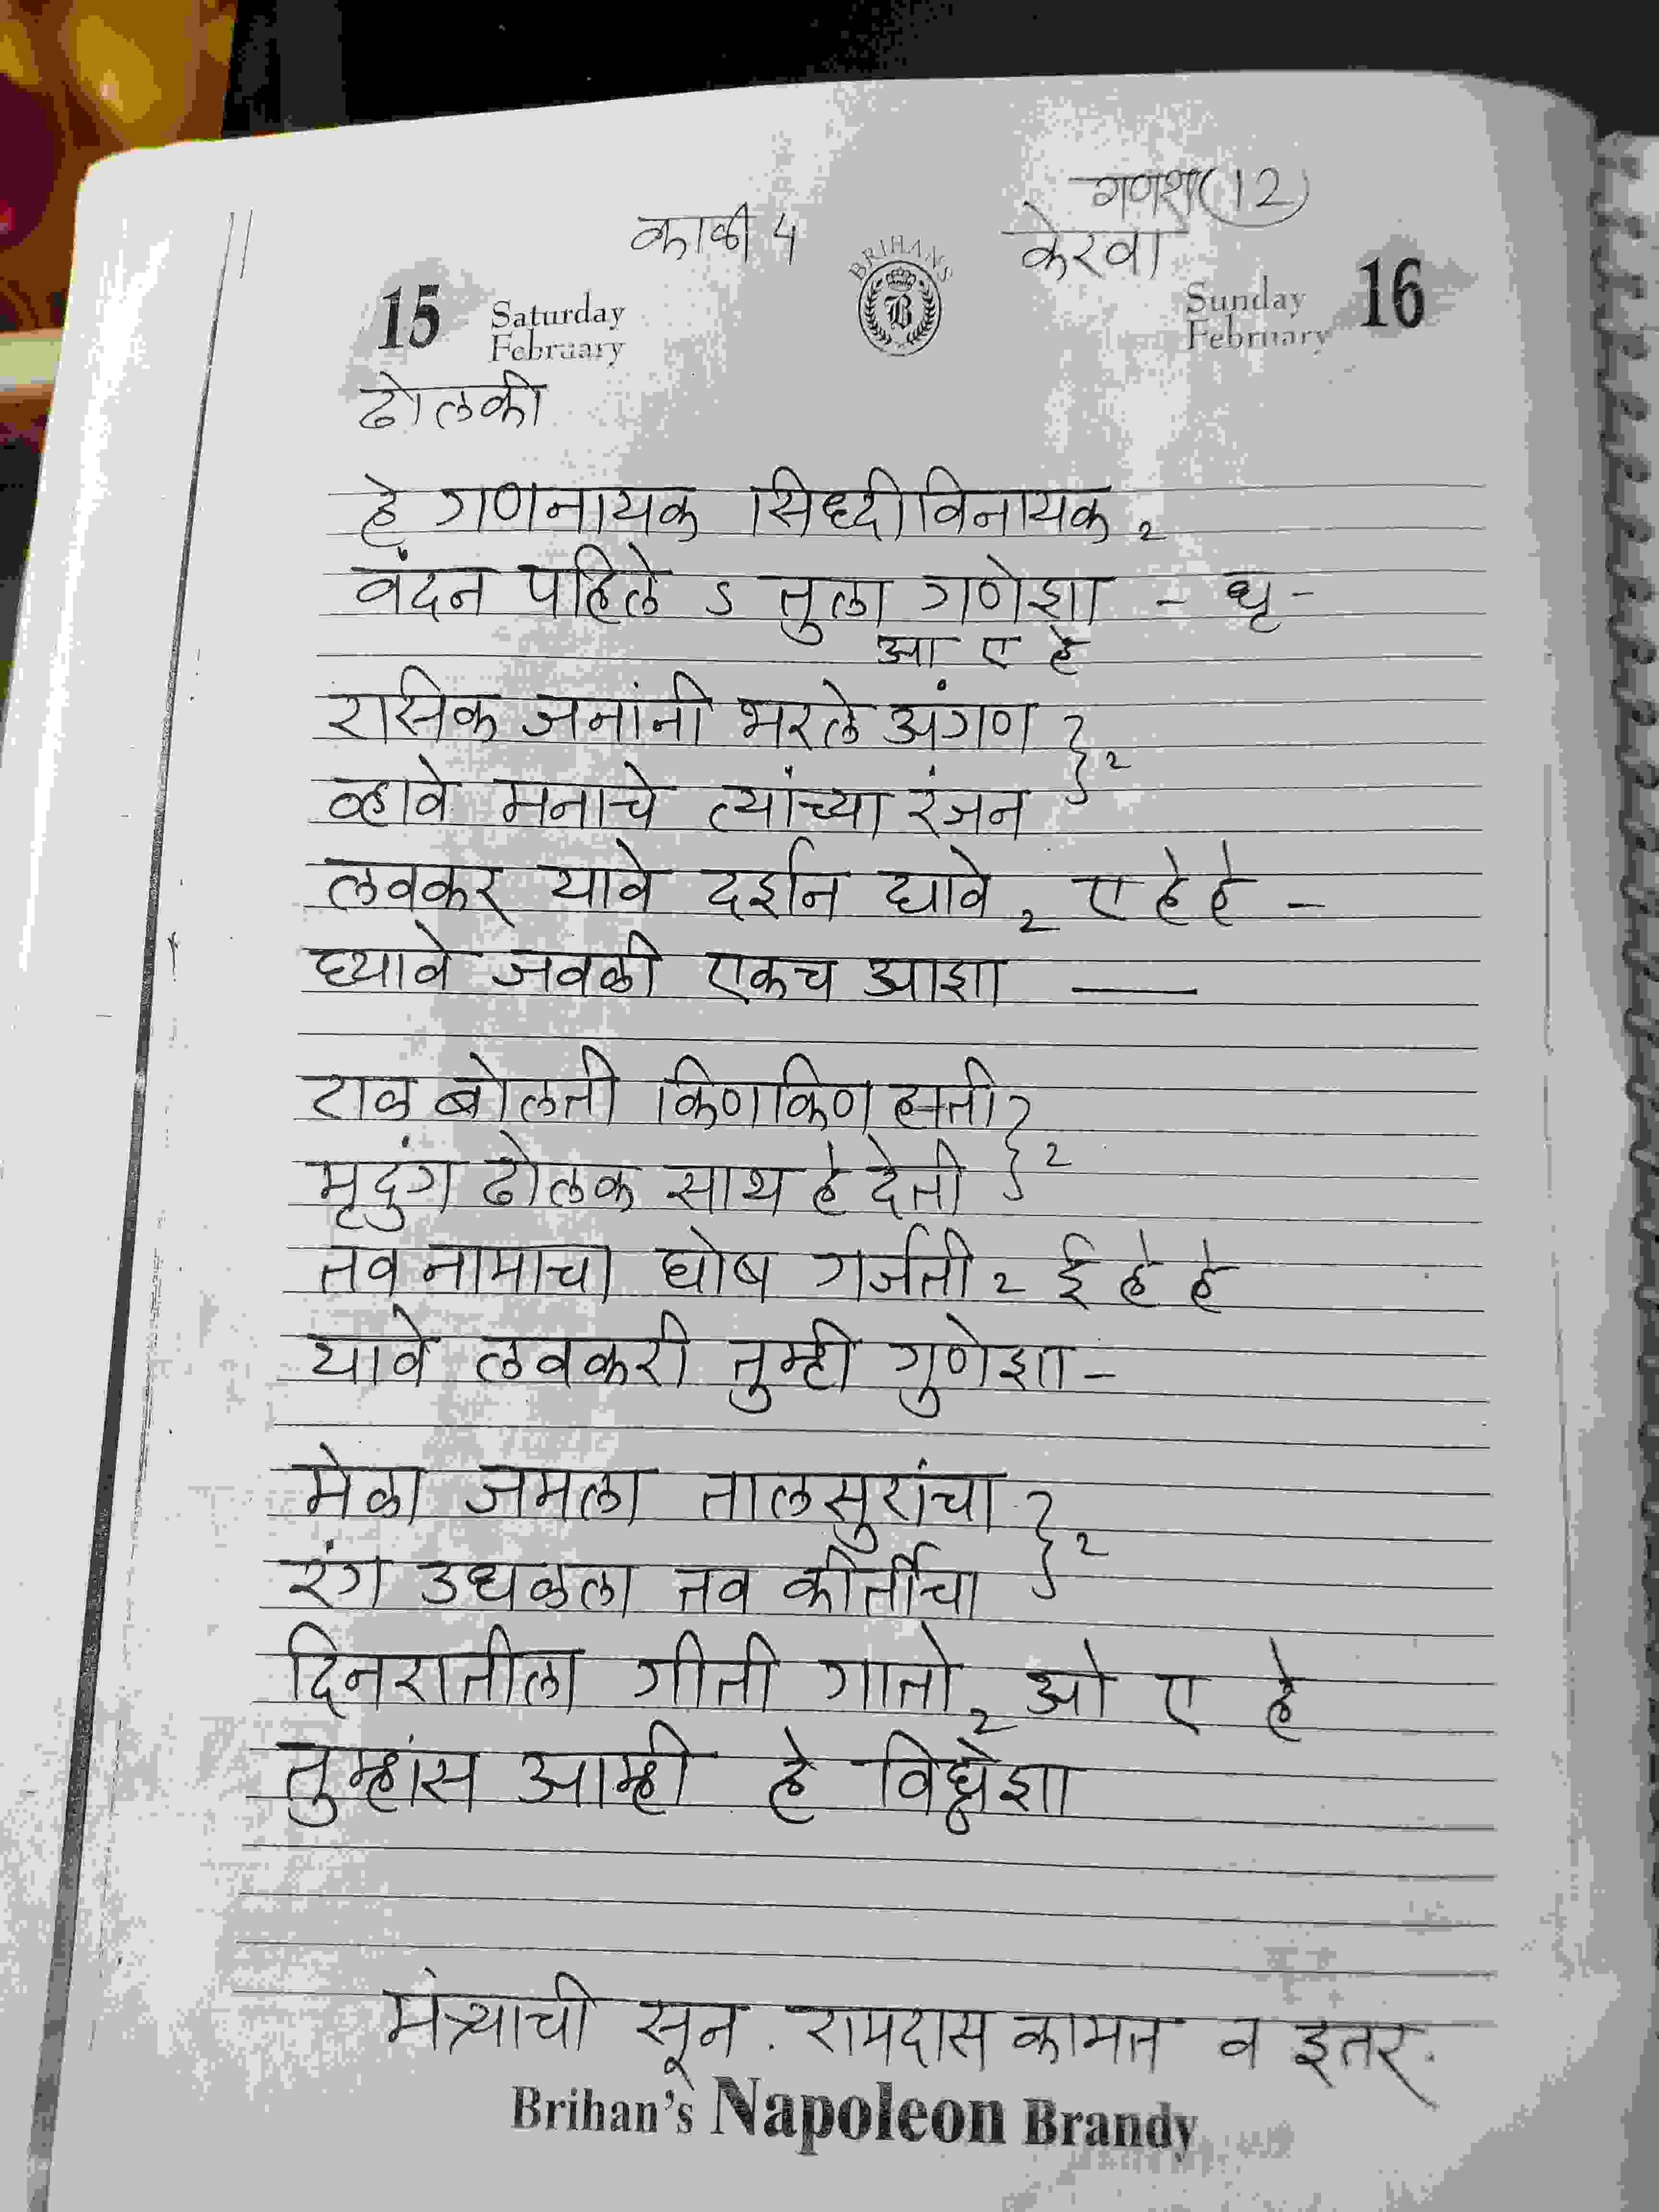 गणेश (12)
काळी 4 केरवा
BRIHANS
B
15 Saturday February
Sunday February 16
ढोलकी
हे गणनायक सिध्दीविनायक 2
वंदन पहिले ऽ तुला गणेशा - धृ -
आ ए हे
रसिक जनांनी भरले अंगण } 2
व्हावे मनाचे त्यांच्या रंजन
लवकर यावे दर्शन द्यावे 2 ए हे हे -
घ्यावे जवळी एकच आशा —
टाळ बोलती किणकिण हाती } 2
मृदुंग ढोलक साथ हे देती
तव नामाचा घोष गर्जती 2 ई हे हे
यावे लवकरी तुम्ही गुणेशा -
मेळा जमला तालसुरांचा } 2
रंग उधळला तव कीर्तीचा
दिनरातीला गीती गातो 2 ओ ए हे
तुम्हांस आम्ही हे विघ्नेशा
मंत्र्याची सून . रामदास कामत व इतर .
Brihan's Napoleon Brandy